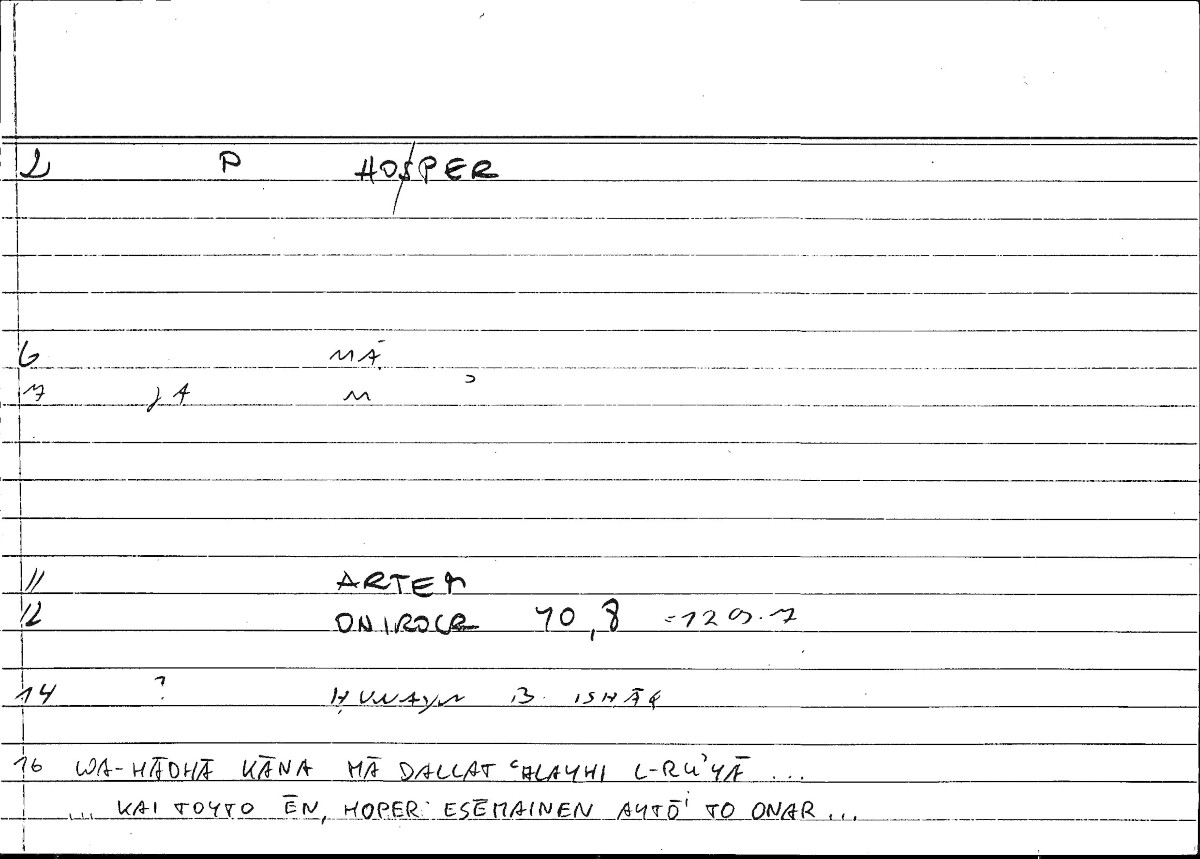 2 P HOSPER
6 MĀ
7 JA M
11 ARTEM
12 ONIROCR 70,8 =129.7
14 ? ḤUNAYN B. ISHĀQ
16 WA-HĀDHĀ KĀNA MĀ DALLAT ʿALAYHI L-RUʾYĀ ...
... KAI TOYTO ĒN, HOPER ESĒMAINEN AYTŌ TO ONAR ...